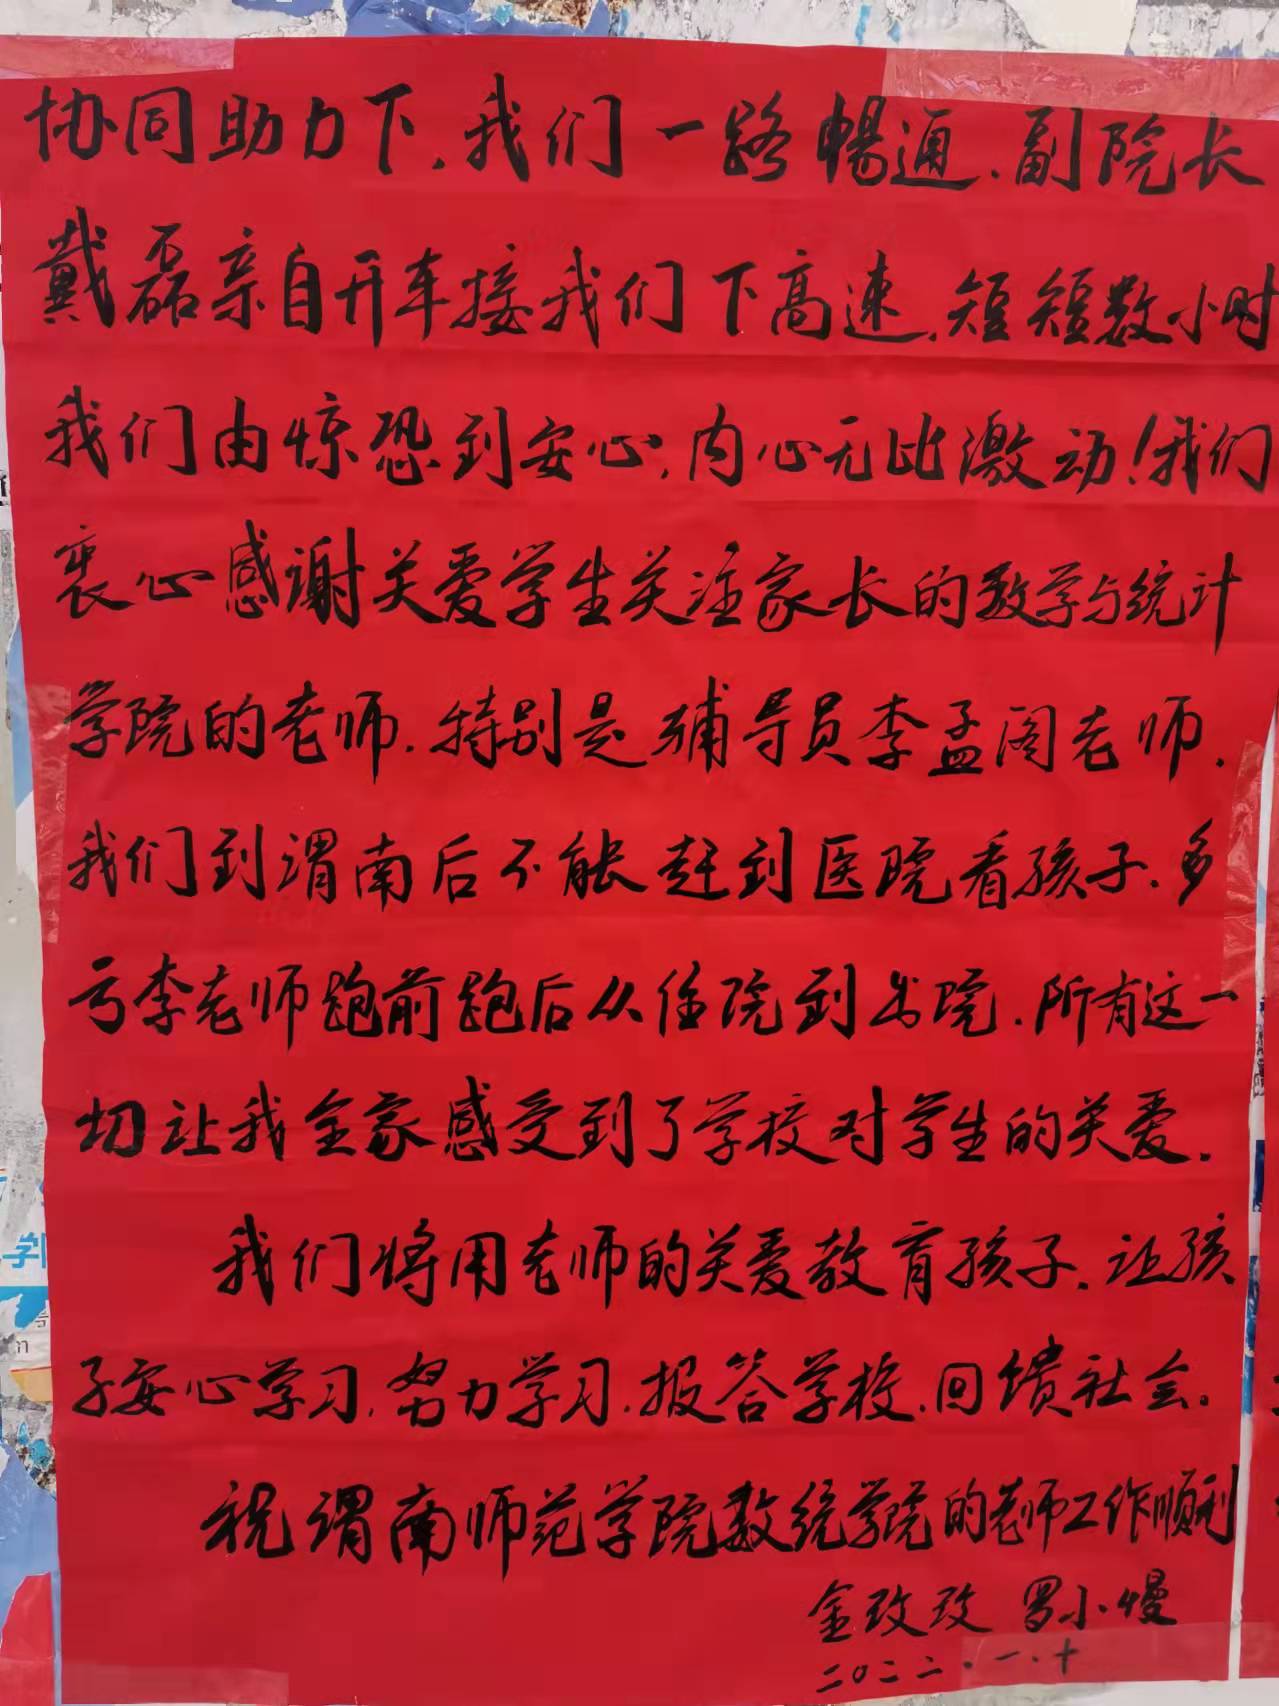 协同助力下,我们一路畅通,副院长
戴磊亲自开车接我们下高速,短短数小时
我们由惊恐到安心,内心无比激动!我们
衷心感谢关爱学生关注家长的数学与统计
学院的老师.特别是辅导员李孟阁老师.
我们到渭南后不能赶到医院看孩子.多
亏李老师跑前跑后从住院到出院.所有这一
切让我全家感受到了学校对学生的关爱.
我们将用老师的关爱教育孩子.让孩
子安心学习,努力学习.报答学校,回馈社会.
祝渭南师范学院数统学院的老师工作顺利
金玫玫 罗小慢
二〇二二.一.十
学